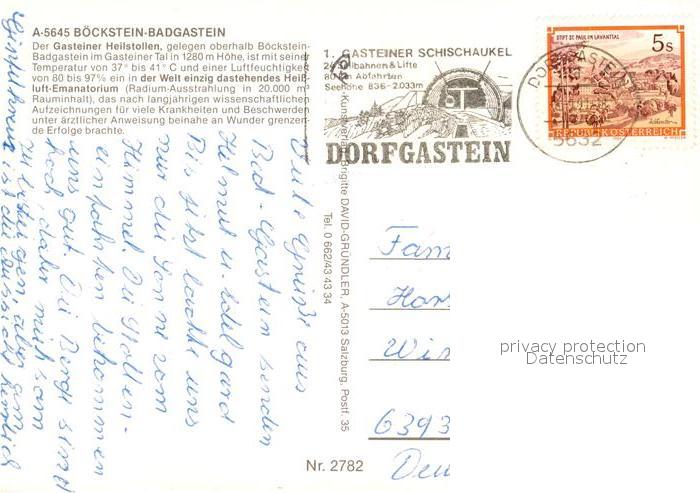 A-5645 BÖCKSTEIN-BADGASTEIN
Der Gasteiner Heilstollen, gelegen oberhalb Böckstein-
Badgastein im Gasteiner Tal in 1280 m Höhe, ist mit seiner
Temperatur von 37° bis 41° C und einer Luftfeuchtigkeit
von 80 bis 97% ein in der Welt einzig dastehendes Heiß-
luft-Emanatorium (Radium-Ausstrahlung in 20.000 m
Rauminhalt), das nach langjährigen wissenschaftlichen
Aufzeichnungen für viele Krankheiten und Beschwerden
unter ärztlicher Anweisung beinahe an Wunder grenzen-
de Erfolge brachte.
Viele Grüße aus
Bad-Gastein senden
Helmut u. Edelgard
Bis jetzt lachte uns
nur die Sonne vom
Himmel. Die Stollen-
einfahrten bekommen
uns gut. Die Berge sind
hoch, daher mühsam
zu besteigen, aber zum
ist die Aussicht herrlich
Kunstverlag Brigitte DAVID-GRÜNDLER, A-5013 Salzburg, Postf. 35
Tel. 0 662/43 43 34
Nr. 2782
1. GASTEINER SCHISCHAUKEL
Seilbahnen & Lifte
80 km Abfahrten
Seehöhe 836-2.033m
DORFGASTEIN
DORFGASTEIN
5632
STIFT ST. PAUL IM LAVANTTAL
5s
REPUBLIK ÖSTERREICH
Fam
Har
Wir
6393
Deu
privacy protection
Datenschutz